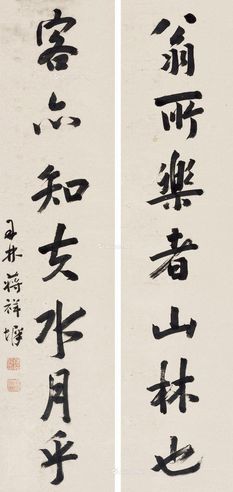 翁所樂者山林也
客亦知夫水月乎
玉林蔣祥墀